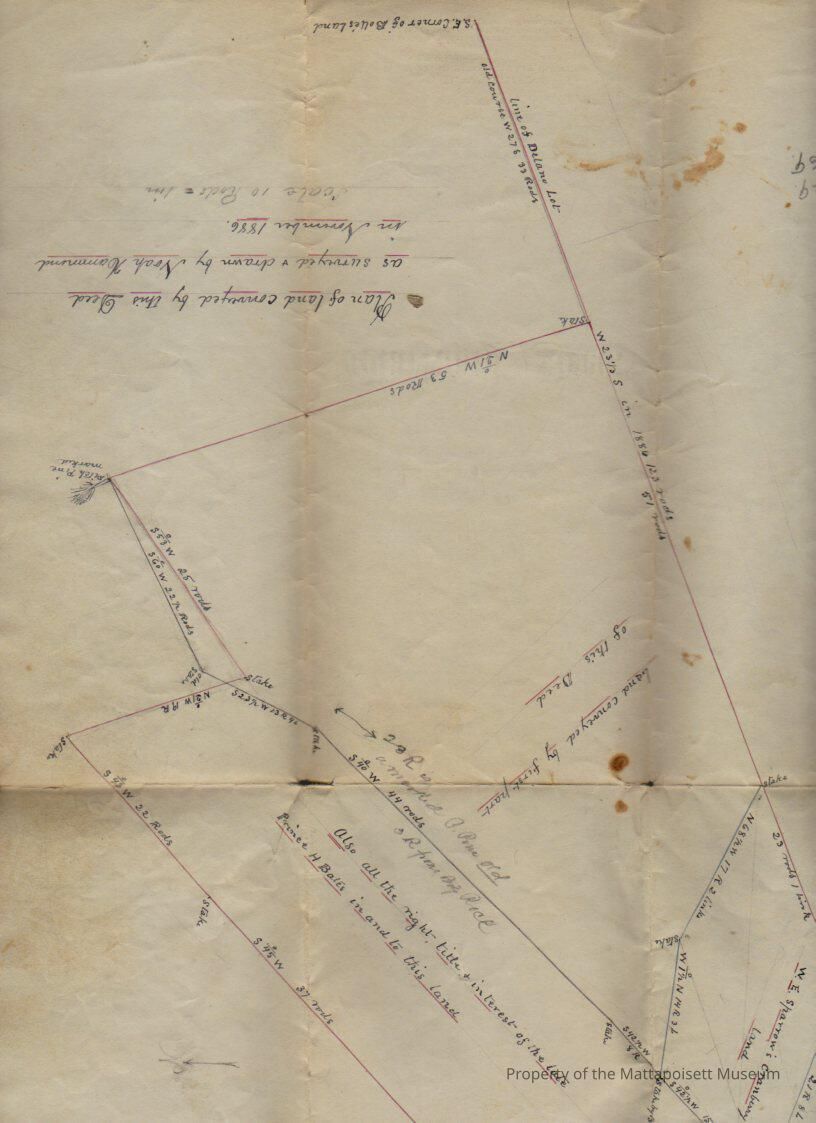 S.E. Corner of Bolles Land
old course W 27 S 33 Rods
Line of Delano Lot
Scale 10 Rods = 1 in
in November 1886.
as surveyed & drawn by Noah Hammond
Plan of land conveyed by this Deed
Stake
N 21° W 53 Rods
W 23½ S in 1886 123 rods
51 rods
Pitch Pine
marked
S 53° W 25 rods
S 60° W 22½ Rods
old
Stake
Stake
N 21° W 19 R
Stake
Stake
Land conveyed by first part
of this Deed
S 40° W 44 rods
a marked P. Pine
Also all the right, title & interest of the late
Prince H Bates in and to this land
S 43° W 22 Rods
Stake
S 45° W 37 rods
Stake
Stake
23 rods 1 link
N 68½ W 17 R 2 links
Stake
W 1½ N 14 R 3 L
W. E. Sparrow's Cranberry
land
21 R 8 L
Property of the Mattapoisett Museum